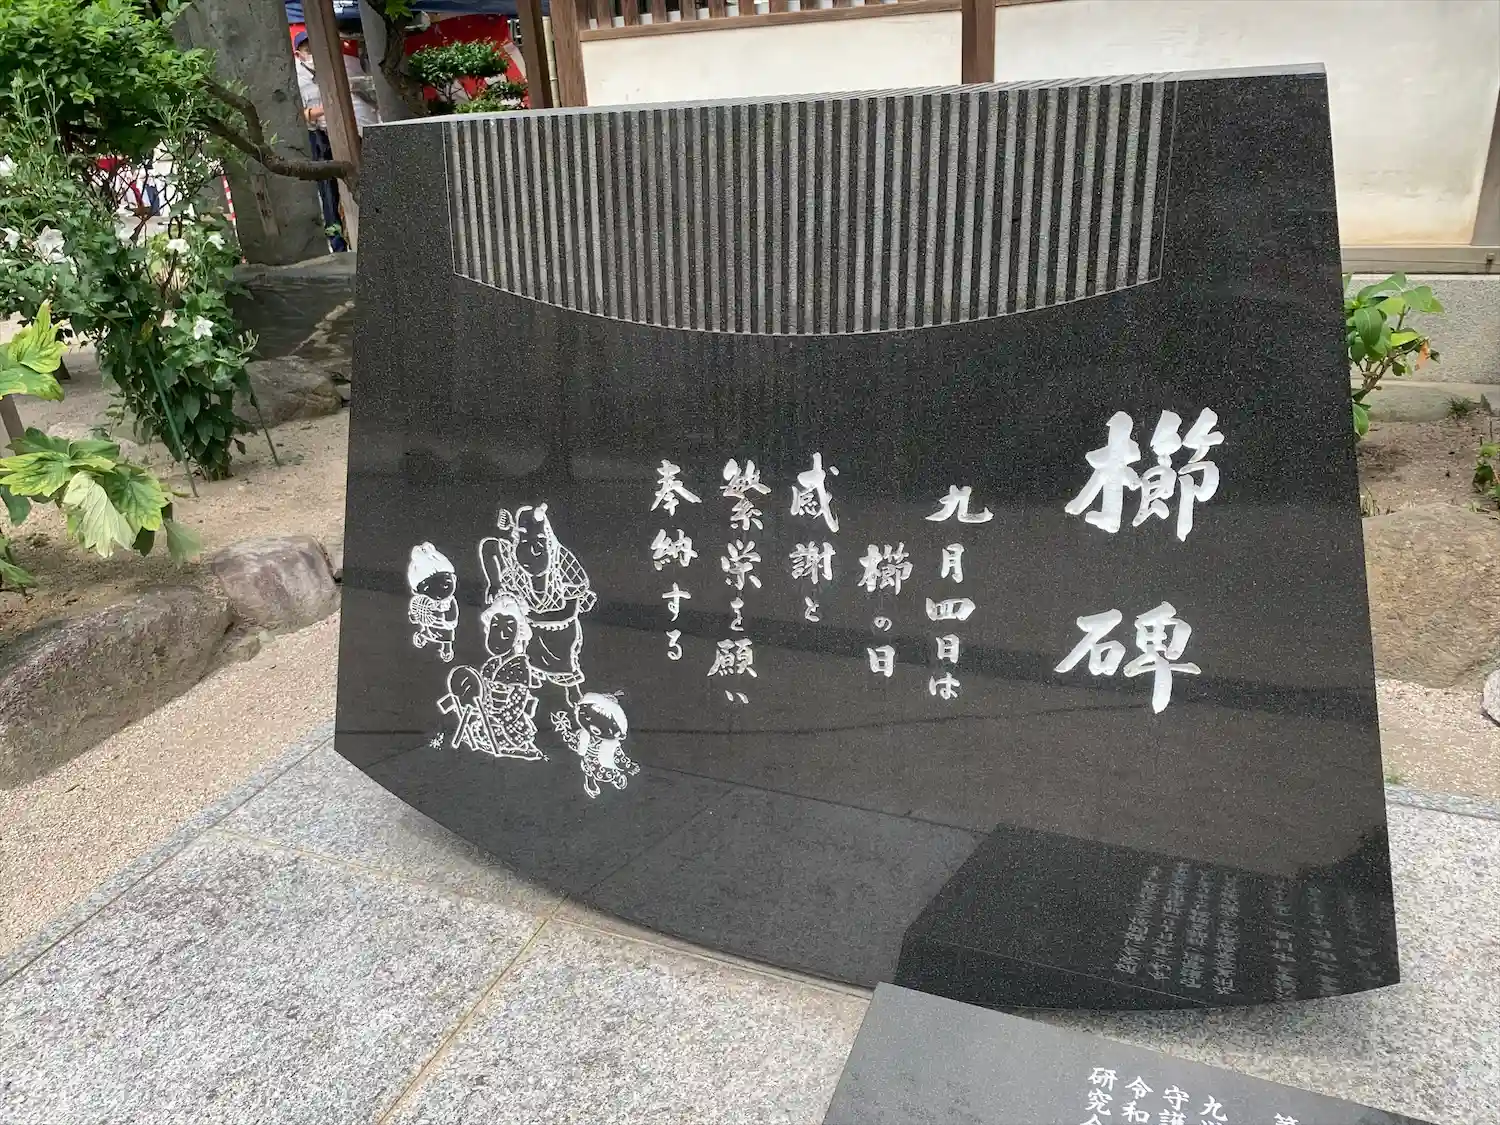 櫛碑
九月四日は
櫛の日
感謝と
繁栄を願い
奉納する
九
守護
令和
研究会